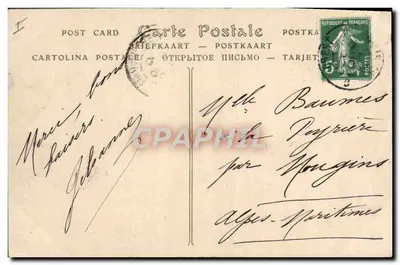 I
POST CARD
Carte Postale
POSTKA
BRIEFKAART — POSTKAART
CARTOLINA POSTALE
ОТКРЫТОЕ ПИСЬМО
TARJET
RÉPUBLIQUE FRANÇAISE
5c
POSTES
Merci, bons
baisers
Jehanne
CPARAMA
Mlle Baumes
la Peyrière
par Mougins
Alpes-Maritimes